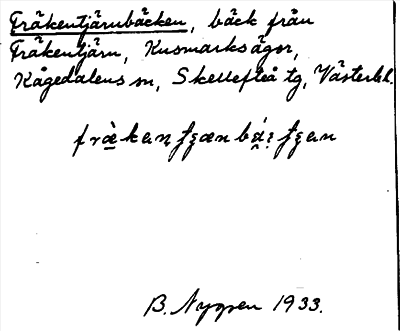 Fräkentjärnbäcken, bäck från
Fräkentjärn, Kusmarks ägor,
Kågedalens sn, Skellefteå tg, Västerb.l.
B. Nygren 1933.